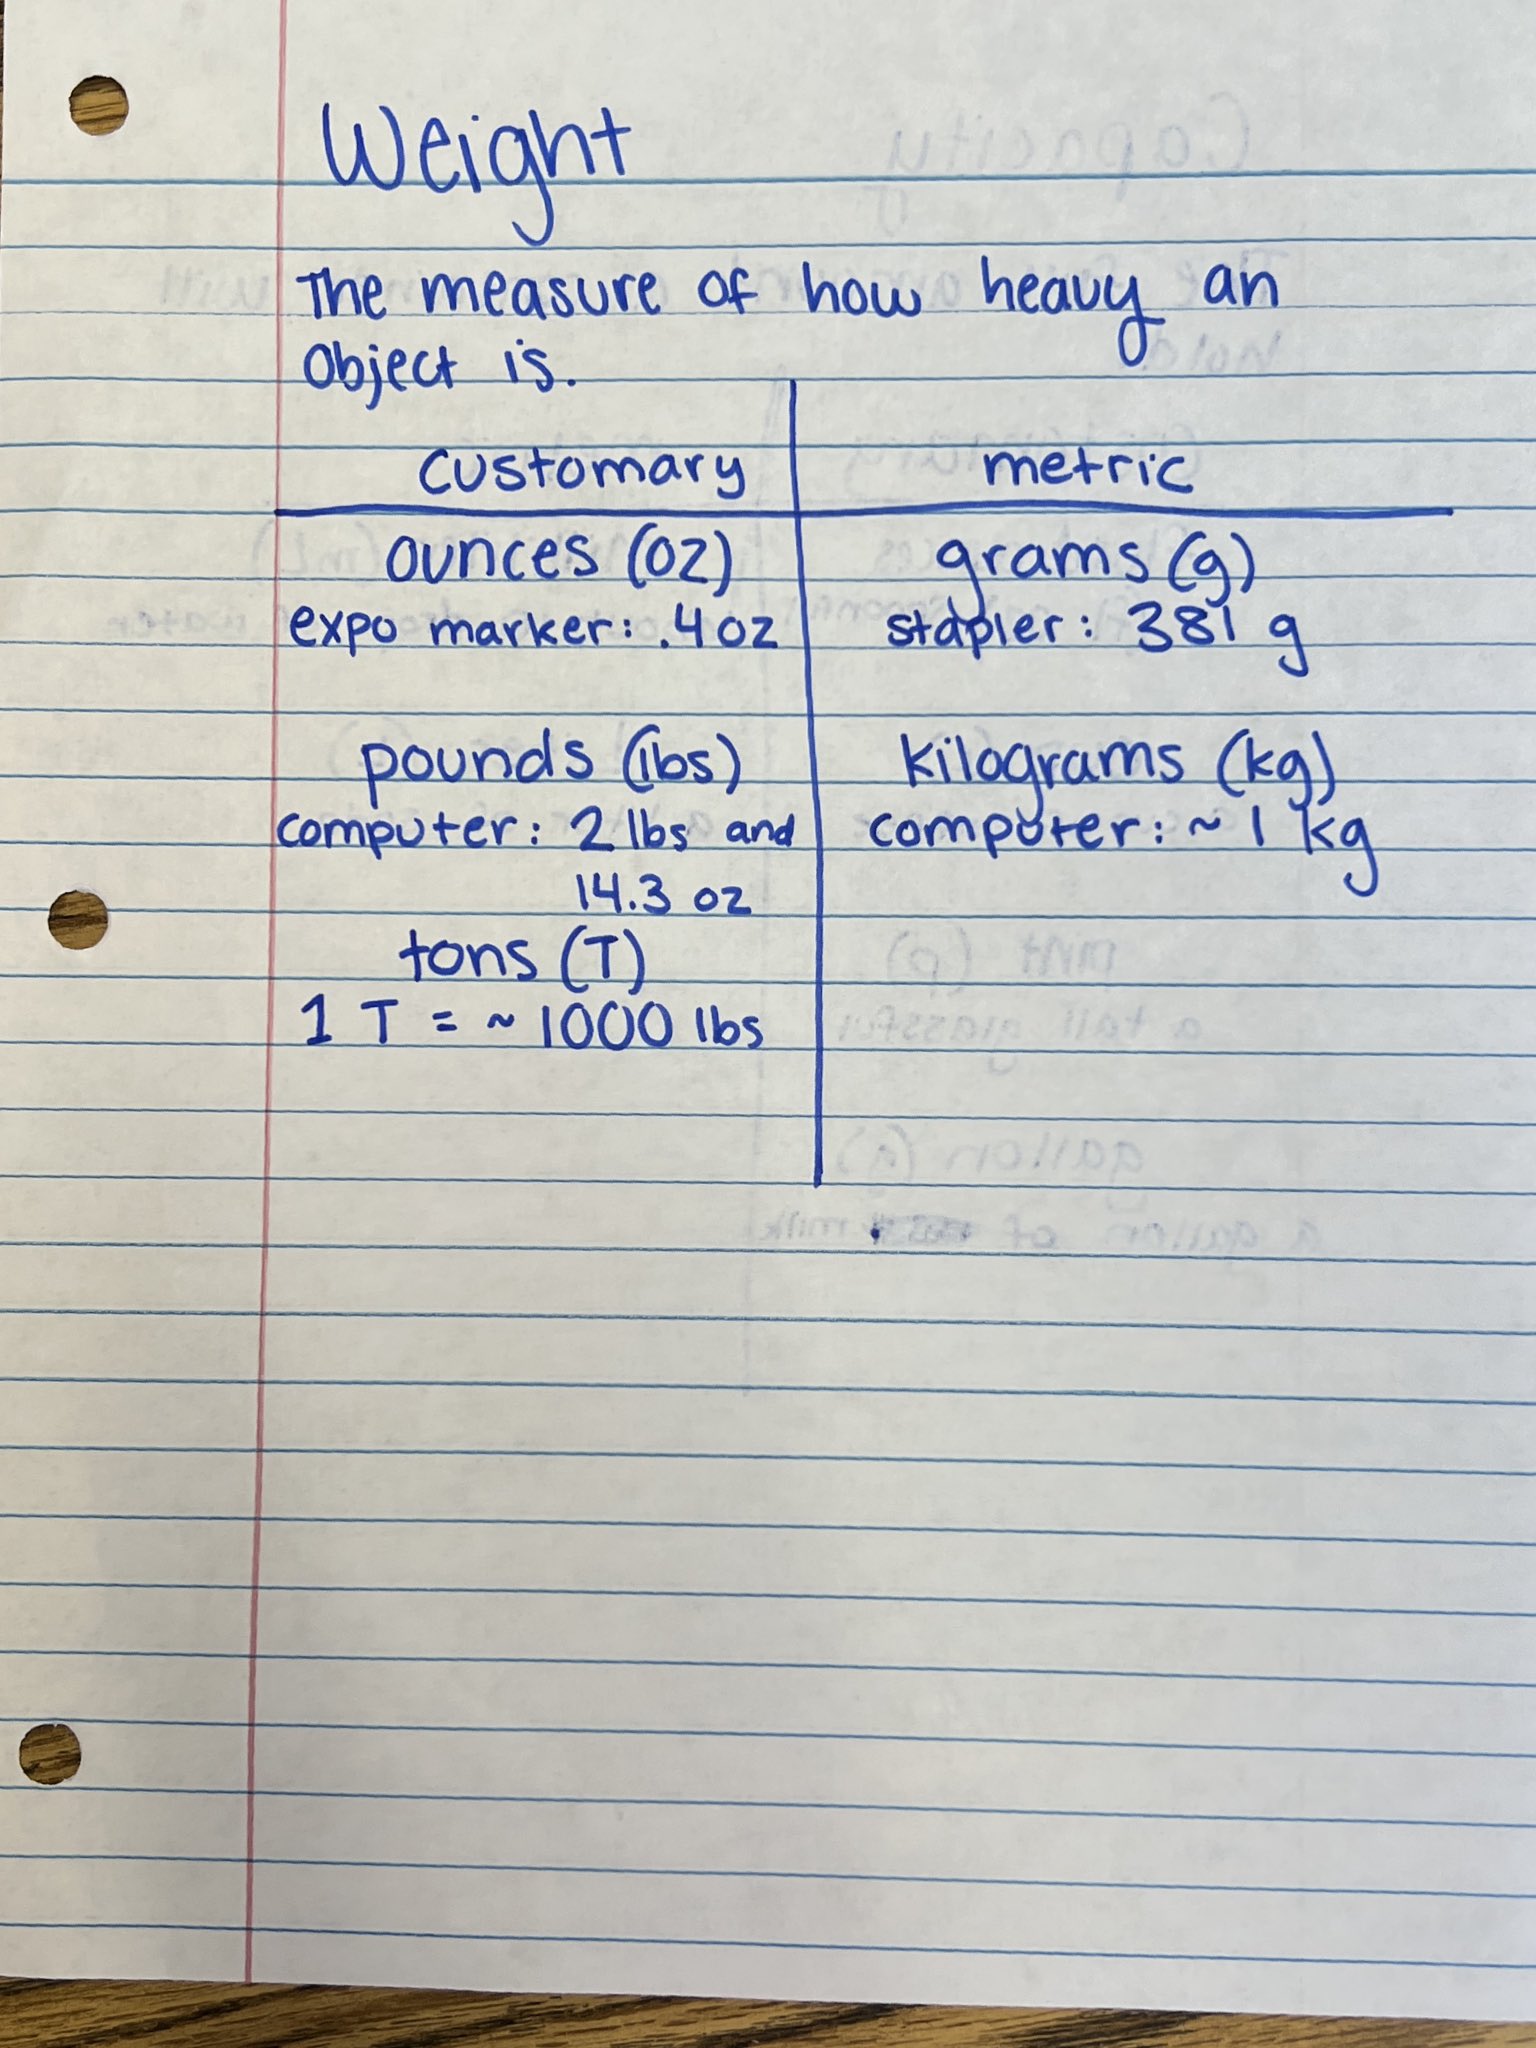 Weight
The measure of how heavy an
Object is.
customary
metric
ounces (oz)
grams (g)
expo marker: .4 oz
stapler: 381 g
pounds (lbs)
kilograms (kg)
computer: 2 lbs and
14.3 oz
computer: ~ 1 kg
tons (T)
1 T = ~ 1000 lbs